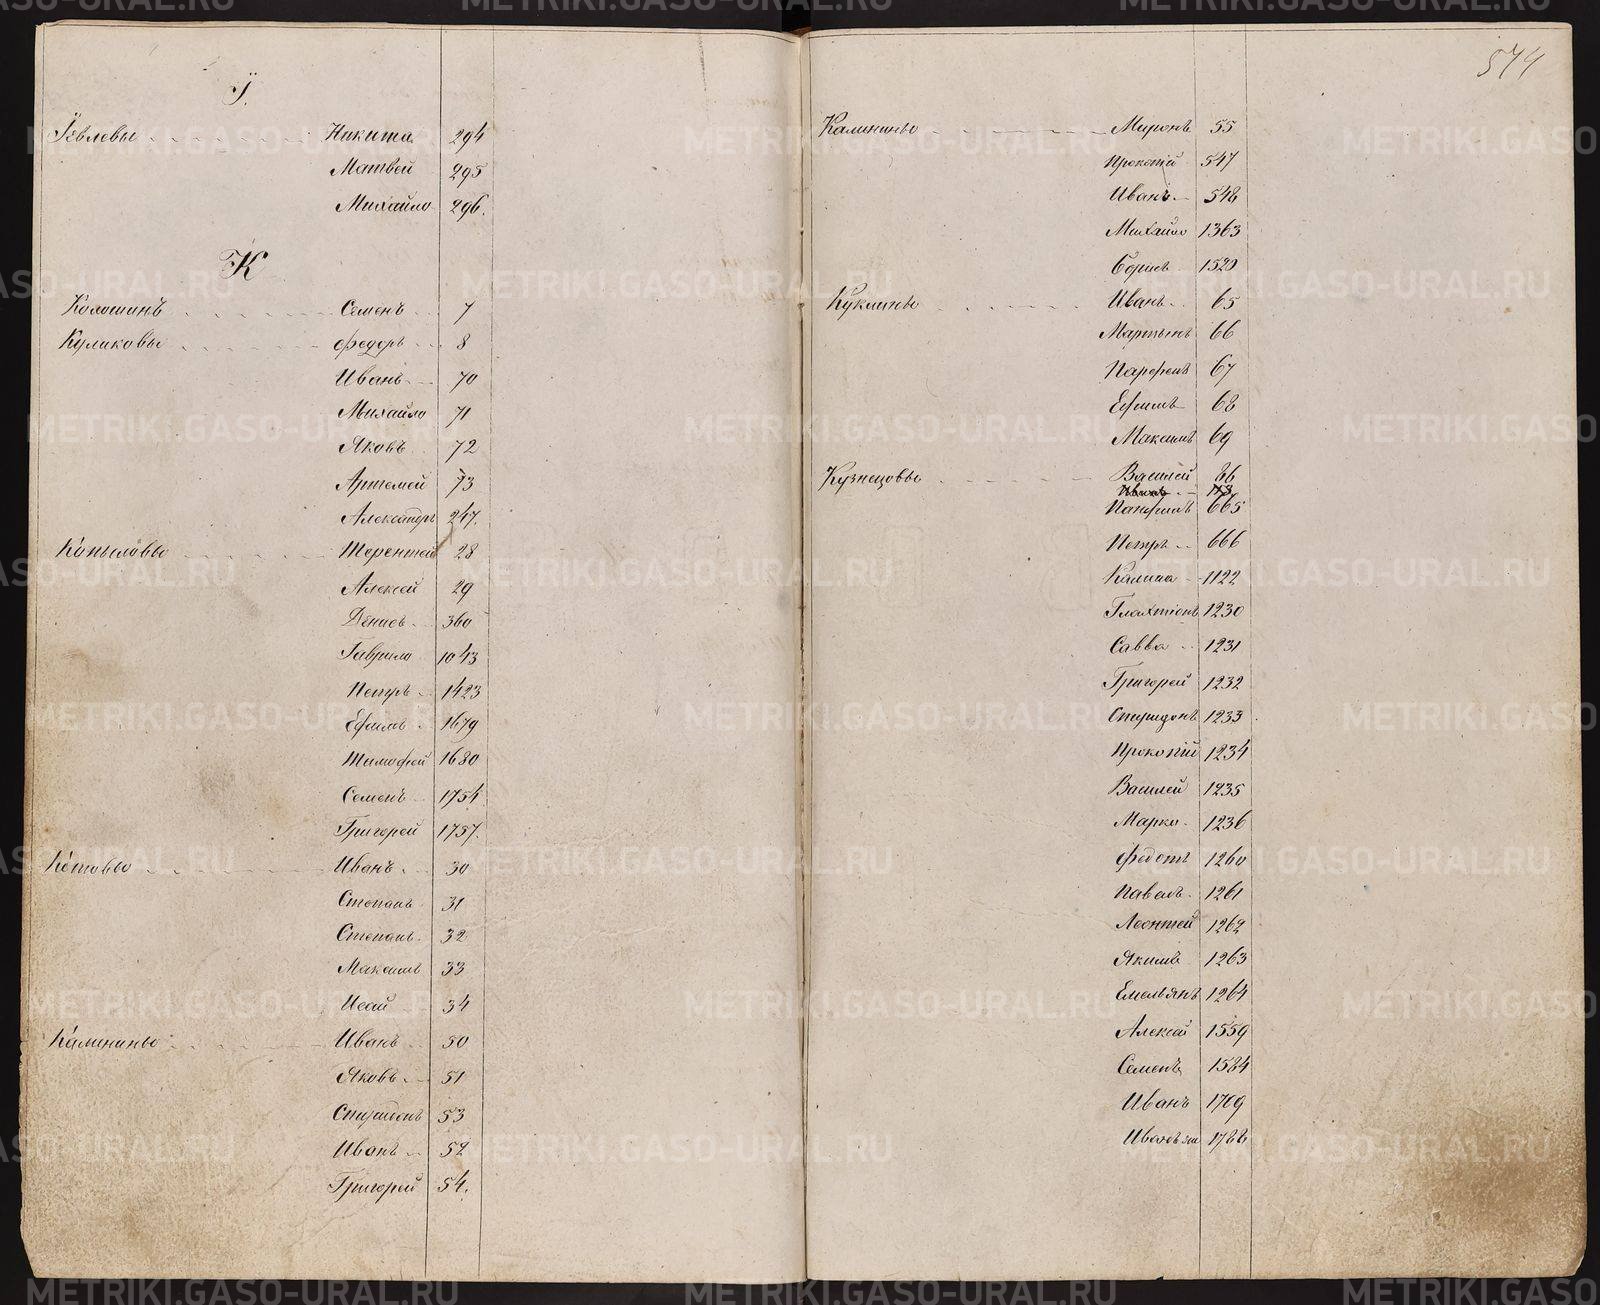 Ї.
Їевлевы Никита 294
Матвей 295
Михайло 296.
К
Колошинъ Семенъ 7
Куликовы Федоръ 8
Иванъ 70
Михайло 71
Яковъ 72
Артемей 73
Александръ 247.
Копыловы Терентей 28
Алексей 29
Денисъ 360
Гаврило 1043
Петръ 1423
Ефимъ 1679
Тимофей 1680
Семенъ 1754
Григорей 1757.
Котовы Иванъ 30
Степанъ 31
Степанъ 32
Максимъ 33
Исай 34
Калинины Иванъ 50
Яковъ 51
Спиридонъ 53
Иванъ 52
Григорей 54.
544
Калинины Миронъ 55
Прокопій 547
Иванъ 548
Михайло 1363
Борисъ 1520
Куклины Иванъ 65
Мартынъ 66
Парфенъ 67
Ефимъ 68
Максимъ 69
Кузнецовы Василей 86
Иванъ 113
Панфилъ 665
Петръ 666
Калина 1122
Галахтіонъ 1230
Савва 1231
Григорей 1232
Спиридонъ 1233
Прокопій 1234
Василей 1235
Марко 1236
Федотъ 1260
Павелъ 1261
Леонтей 1262
Якимъ 1263
Емельянъ 1264
Алексей 1559
Семенъ 1584
Иванъ 1709
Иванъ 1788
METRIKI.GASO-URAL.RU